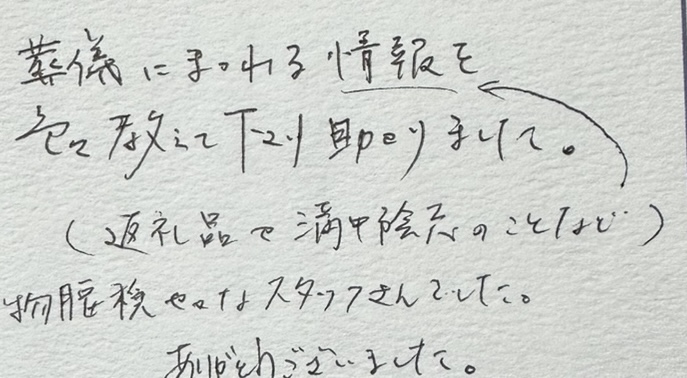 葬儀にまつわる情報を
色々教えて下さり助かりました。
(返礼品や満中陰志のことなど)
物腰柔らかなスタッフさんでした。
ありがとうございました。